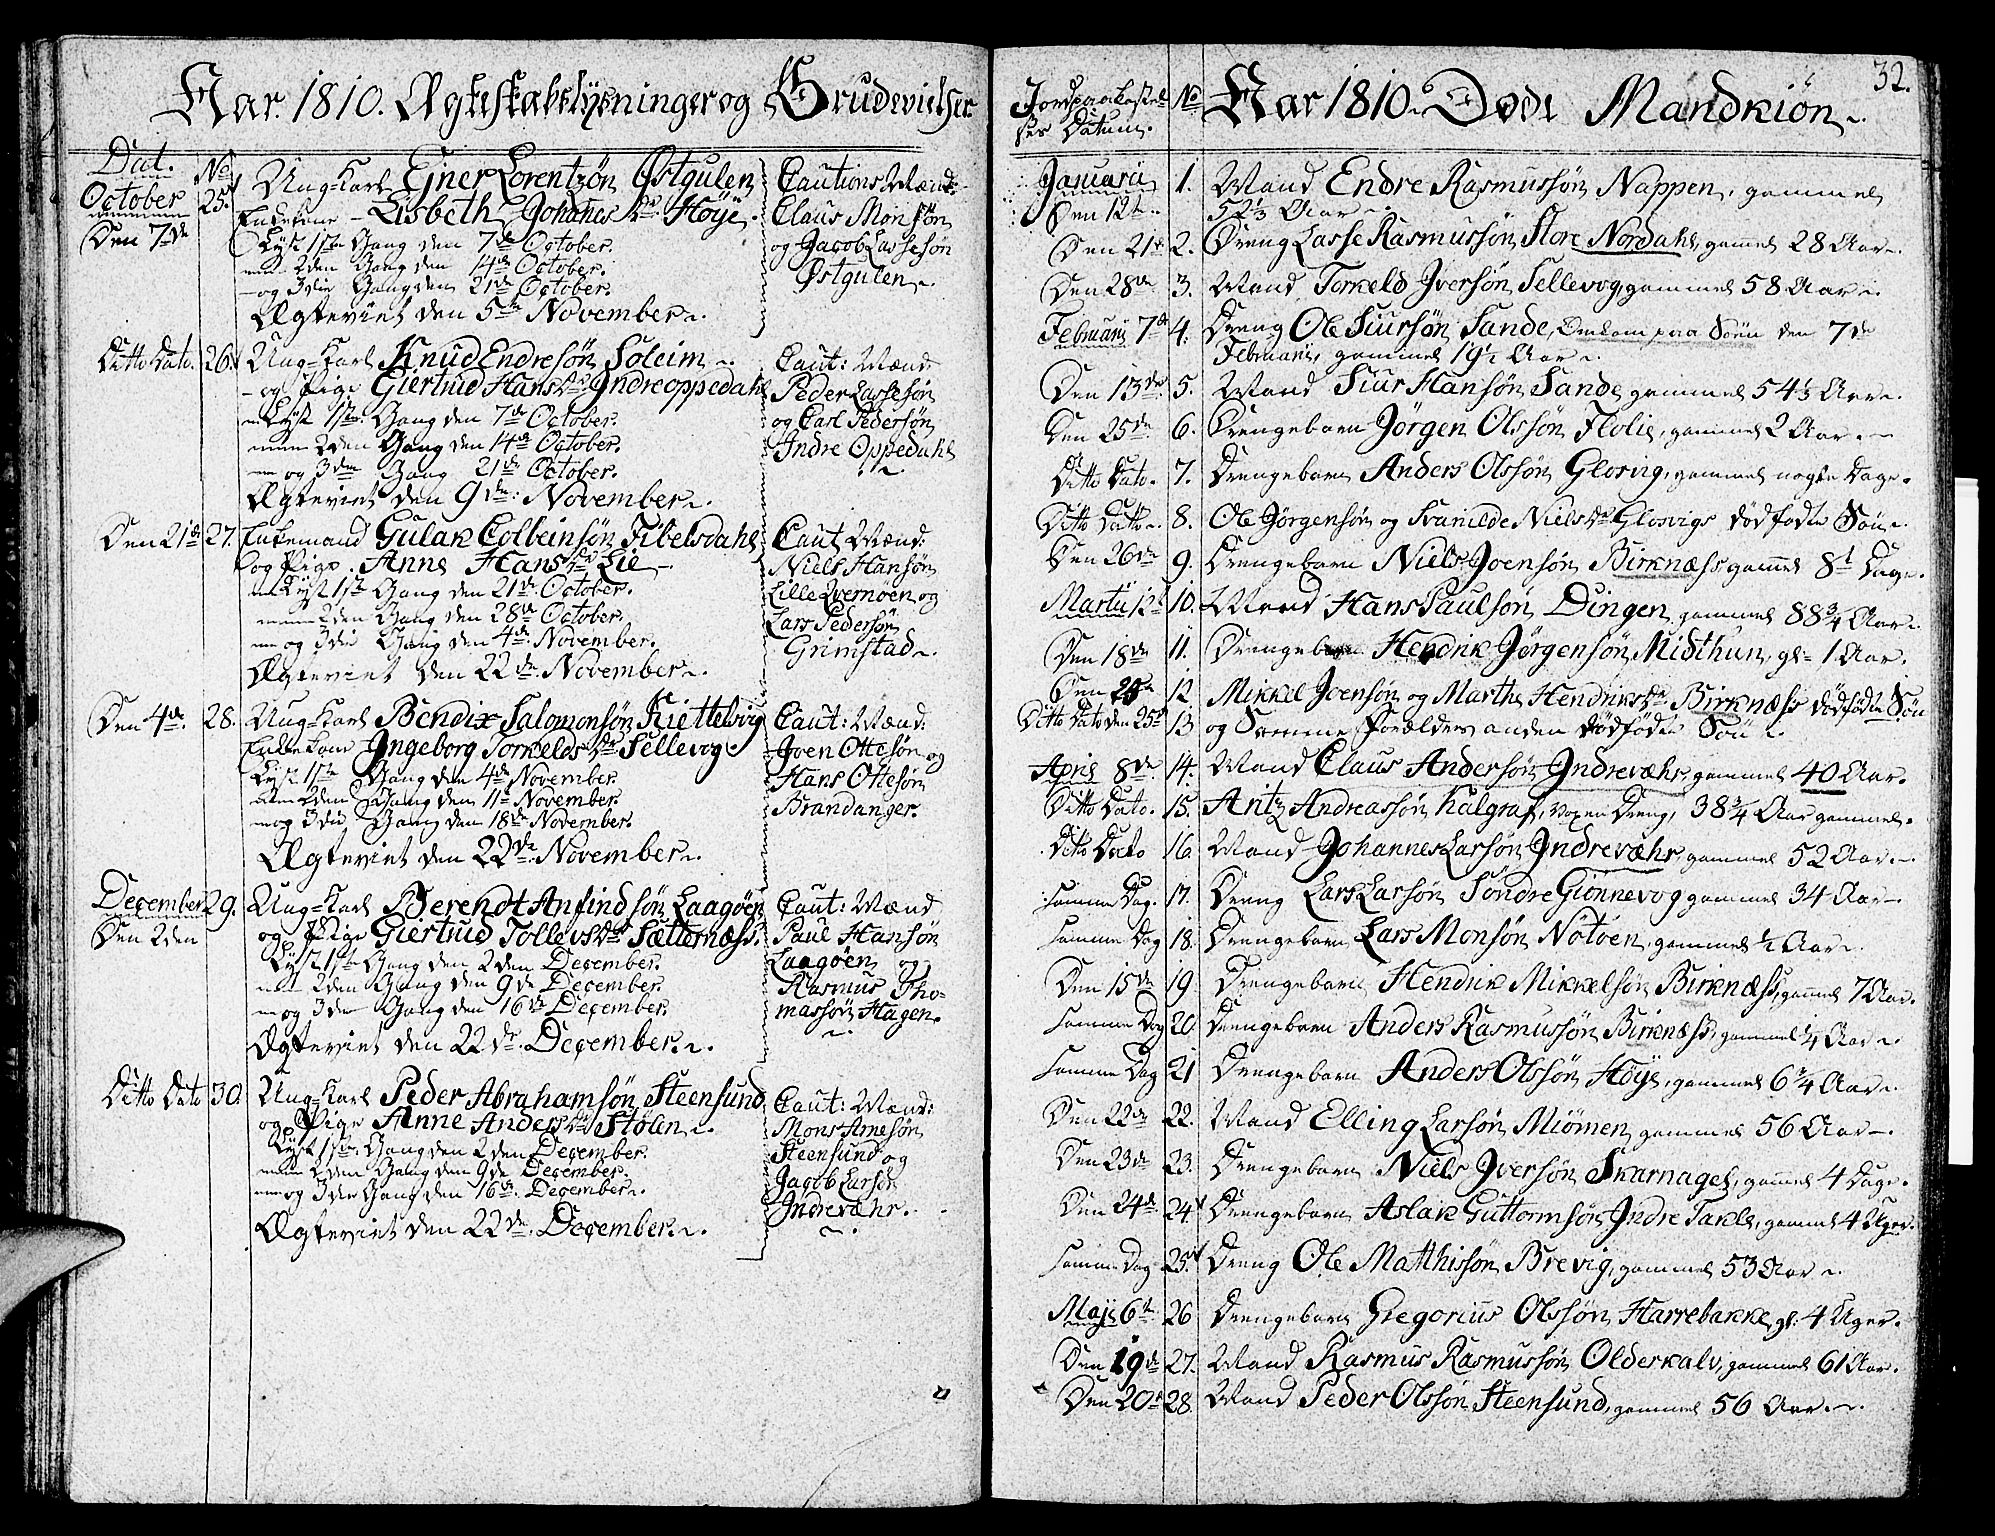 Aar 1810. Ægteskabslysninger og Brudevielser
Dat. No
October 25. Ung-Karl Ejner Lorentzøn Østgulen
Enkekone Lisbeth Johannesdr Høije.
Den 7de Lyst 1ste Gang den 7de October.
2den Gang den 14de October.
og 3die Gang den 21de October.
Ægteviet den 5te November.
Cautions Mænd:
Claus Monsøn
og Jacob Lassesøn
Østgulen.
Ditto Dato. 26. Ung-Karl Knud Endresøn Soleim
og Pige Giertrud Hansdr Indreoppedahl
Lyst 1ste Gang den 7de October.
2den Gang den 14de October.
og 3die Gang 21de October.
Ægteviet den 9de November.
Caut: Mænd:
Peder Lassesøn
og Carl Pedersøn
Indre Oppedahl
Den 21de 27. Enkemand Gulak Colbeinsøn Fibelsdahl
og Pige Anne Hansdr Lie
Lyst 1ste Gang den 21de October.
2den Gang den 28de October.
og 3die Gang den 4de November.
Ægteviet den 22de November.
Caut Mænd:
Niels Hansøn
Lille Qvernøen og
Lars Pedersøn
Grimstad.
Den 4de. 28. Ung-Karl Bendix Salomonsøn Kiettelvig
Enkekone Ingeborg Torkeldsdr Sellevog.
Lyst 1ste Gang den 4de November.
2den Gang den 11te November.
og 3die Gang den 18de November.
Ægteviet den 22de November.
Caut: Mænd:
Joen Ottesøn og
Hans Ottesøn
Brandanger.
December 29. Ung-Karl Berendt Anfindsøn Laagøen
Den 2den og Pige Giertrud Tollevsdr Sætternæss.
Lyst 1ste Gang den 2den December.
2den Gang den 9de December.
og 3die Gang den 16de December.
Ægteviet den 22de December.
Caut: Mænd
Paul Hansøn
Laagøen og
Rasmus Tho-
massøn Hagen.
Ditto Dato 30. Ung-Karl Peder Abrahamsøn Steensund
og Pige Anne Andersdr Stølen.
Lyst 1ste Gang den 2den December.
2den Gang den 9de December.
og 3die Gang den 16de December.
Ægteviet den 22de December.
Caut: Mænd:
Mons Arnesøn
Steensund og
Jacob Larsøn
Indrevæhr.
32.
Jordpaakastel
ses Datum. No Aar 1810. Døde Mandkiøn.
Januarii 1. Mand Endre Rasmussøn Nappen, gammel
Den 12te 52 1/3 Aar.
Den 21de 2. Dreng Lasse Rasmussøn Store Nordahl, gammel 28 Aar.
Den 28de 3. Mand Torkeld Iversøn Sellevog gammel 58 Aar.
Februarii 7de 4. Dreng Ole Siursøn Sande, Omkom paa Søen den 7de
Februarii, gammel 19 1/2 Aar.
Den 13de 5. Mand Siur Hansøn Sande gammel 54 1/3 Aar.
Den 25de 6. Drengebarn Jørgen Olssøn Flolie, gammel 2 Aar.
Ditto Dato. 7. Drengebarn Anders Olssøn Glosvig, gammel nogle Dage.
Ditto Datto 8. Ole Jørgensøn og Svanilde Nielsdr Glosvigs dødfødte Søn.
Den 26de 9. Drengebarn Niels Joensøn Birknæss gammel 8t Dage.
Martii 12te 10. Mand Hans Paulsøn Dingen gammel 88 3/4 Aar.
Den 18de 11. Drengebarn Hendrik Jørgensøn Midthun, gl- 1 Aar.
Den 25de 12 Mikkel Joensøn og Marthe Hendriksdr Birknæss dødfødte Søn
Ditto Dato den 25de 13 og Samme Forældres anden dødfødte Søn.
April 8de 14. Mand Claus Andersøn Indrevæhr, gammel 40 Aar.
Ditto Dato. 15. Aritz Andreassøn Kalgraf, voxen Dreng, 38 3/4 Aar gammel.
Ditto Dato 16. Mand Johannes Larsøn Indrevæhr, gammel 52 Aar.
samme Dag. 17. Dreng Lars Larsøn Søndre Giønnevog gammel 34 Aar
samme Dag 18. Drengebarn Lars Monsøn Notøen, gammel 1/2 Aar.
Den 15de 19 Drengebarn Hendrik Mikkelsøn Birknæss, gammel 7 Aar.
samme Dag 20. Drengebarn Anders Rasmussøn Birknæss, gammel 1/4 Aar.
samme Dag 21 Drengebarn Anders Olssøn Høije, gammel 6 3/4 Aar.
Den 22de 22. Mand Elling Larsøn Miømen, gammel 56 Aar.
Den 23de 23. Drengebarn Niels Iversøn Skarnagel, gammel 4 Dage.
Den 24de 24. Drengebarn Aslak Guttormsøn Indre Takle, gammel 4 Uger.
samme Dag 25. Dreng Ole Matthissøn Brevig, gammel 53 Aar.
Maji 6te 26 Drengebarn Gregorius Olssøn Harrebakke gl: 4 Uger.
Den 19de 27. Mand Rasmus Rasmussøn Olderkalv, gammel 61 Aar.
Den 20de 28. Mand Peder Olssøn Steensund, gammel 56 Aar.